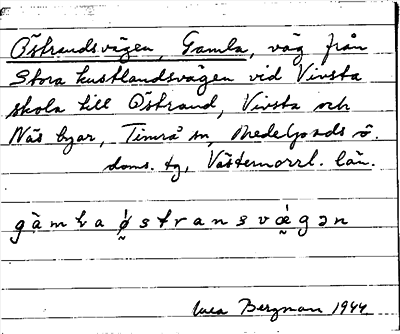 Östrandsvägen, Gamla, väg från
Stora kustlandsvägen vid Vivsta
skola till Östrand, Vivsta och
Näs byar, Timrå sn, Medelpads ö.
doms. tg, Västernorrl. län.
gàmḷa ǿ̣stransvǽ̣gən
Bergman 1944